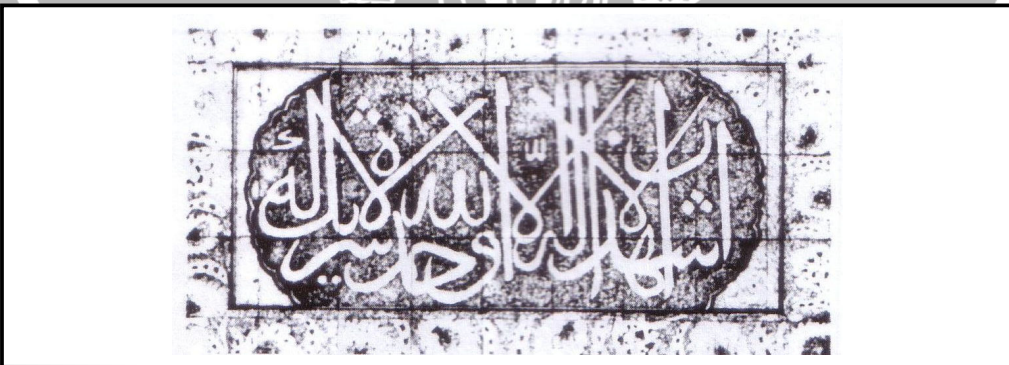 اشهد ان لا اله الا الله وحده لا شریک له